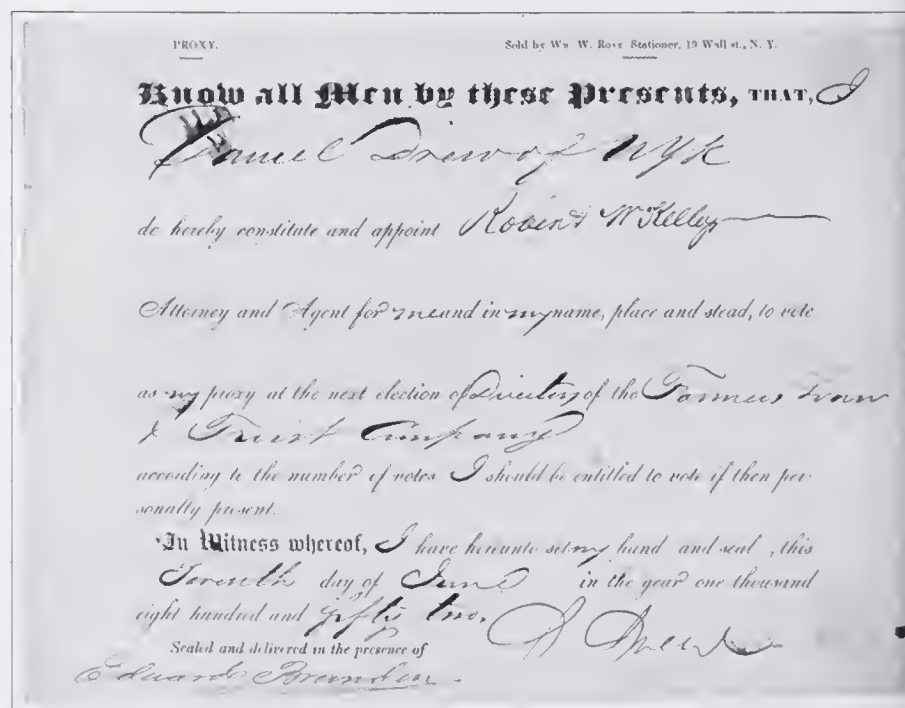 PROXY. Sold by Wm. W. Rose Stationer, 19 Wall st., N. Y.
Know all Men by these Presents, THAT, I
Daniel Drew of NYk
do hereby constitute and appoint Robert W Kelley
Attorney and Agent for me and in my name, place and stead, to vote
as my proxy at the next election of Directors of the Farmers Loan
& Trust Company
according to the number of votes I should be entitled to vote if then per-
sonally present.
In Witness whereof, I have hereunto set my hand and seal, this
day of June in the year one thousand
eight hundred and fifty two.
D Drew
Sealed and delivered in the presence of